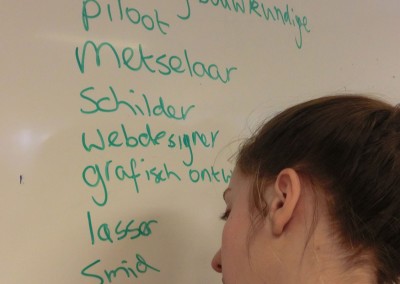 piloot
bouwkundige
metselaar
schilder
webdesigner
grafisch ontw
lasser
smid